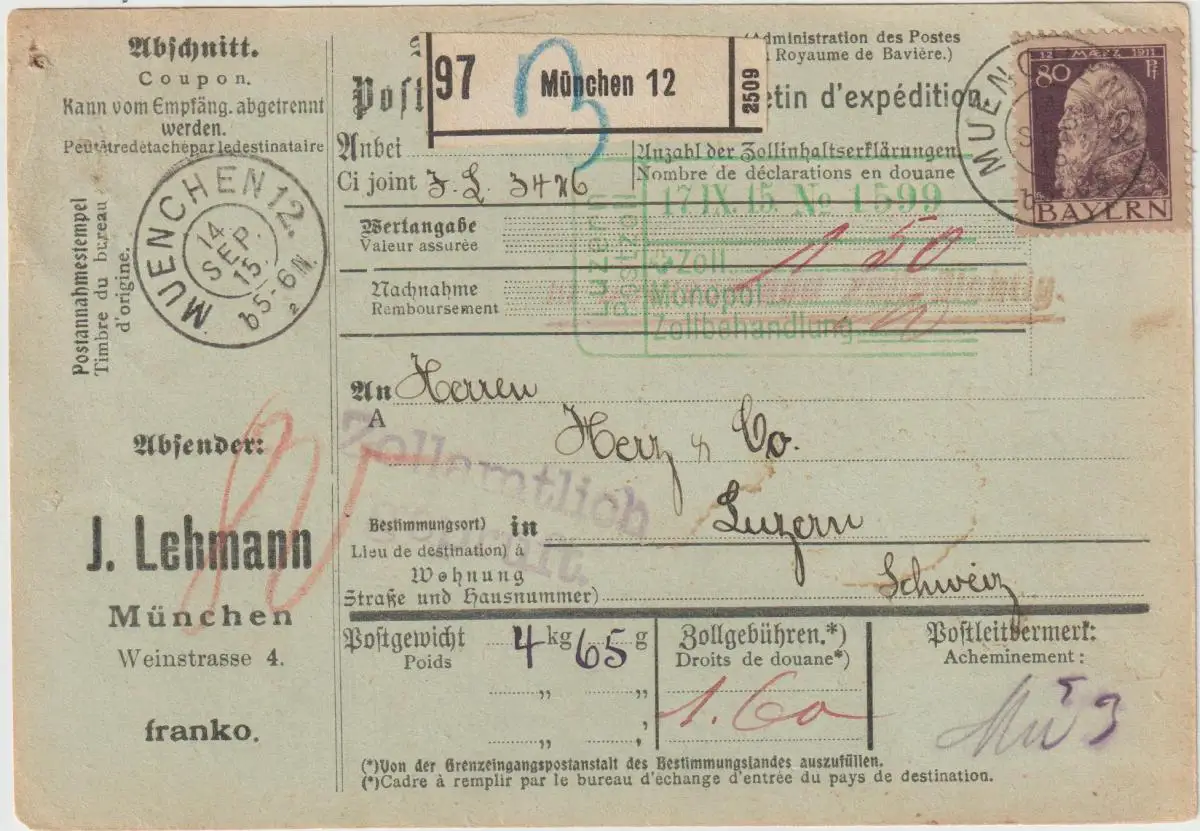 Abschnitt.
Coupon.
Kann vom Empfäng. abgetrennt
werden.
Peutêtredétachéparledestinataire
Postannahmestempel
Timbre du bureau
d'origine.
MUENCHEN 12.
14
SEP.
15.
b 5-6 N.
2
Absender:
80
J. Lehmann
München
Weinstrasse 4.
franko.
97
3
München 12
2509
Post
(Administration des Postes
Royaume de Bavière.)
etin d'expédition
12 MÄRZ 1911
80 Pf
BAYERN
MUENCHEN
Anbei
Ci joint J. L. 3426
Anzahl der Zollinhaltserklärungen
Nombre de déclarations en douane
Luzern
Postzoll
17 IX. 15. No 1599
Zoll
Monopol
Zollbehandlung
1 50
Wertangabe
Valeur assurée
Nachnahme
Remboursement
An Herren
A
Herz & Co.
Zollamtlich
geprüft.
Bestimmungsort) in Luzern
Lieu de destination) à
Wohnung
Straße und Hausnummer)
Schweiz
Postgewicht 4 kg 65 g
Poids
" "
" "
Zollgebühren.*)
Droits de douane*)
1.60
Postleitvermerk:
Acheminement:
(*)Von der Grenzeingangspostanstalt des Bestimmungslandes auszufüllen.
(*)Cadre à remplir par le bureau d'échange d'entrée du pays de destination.